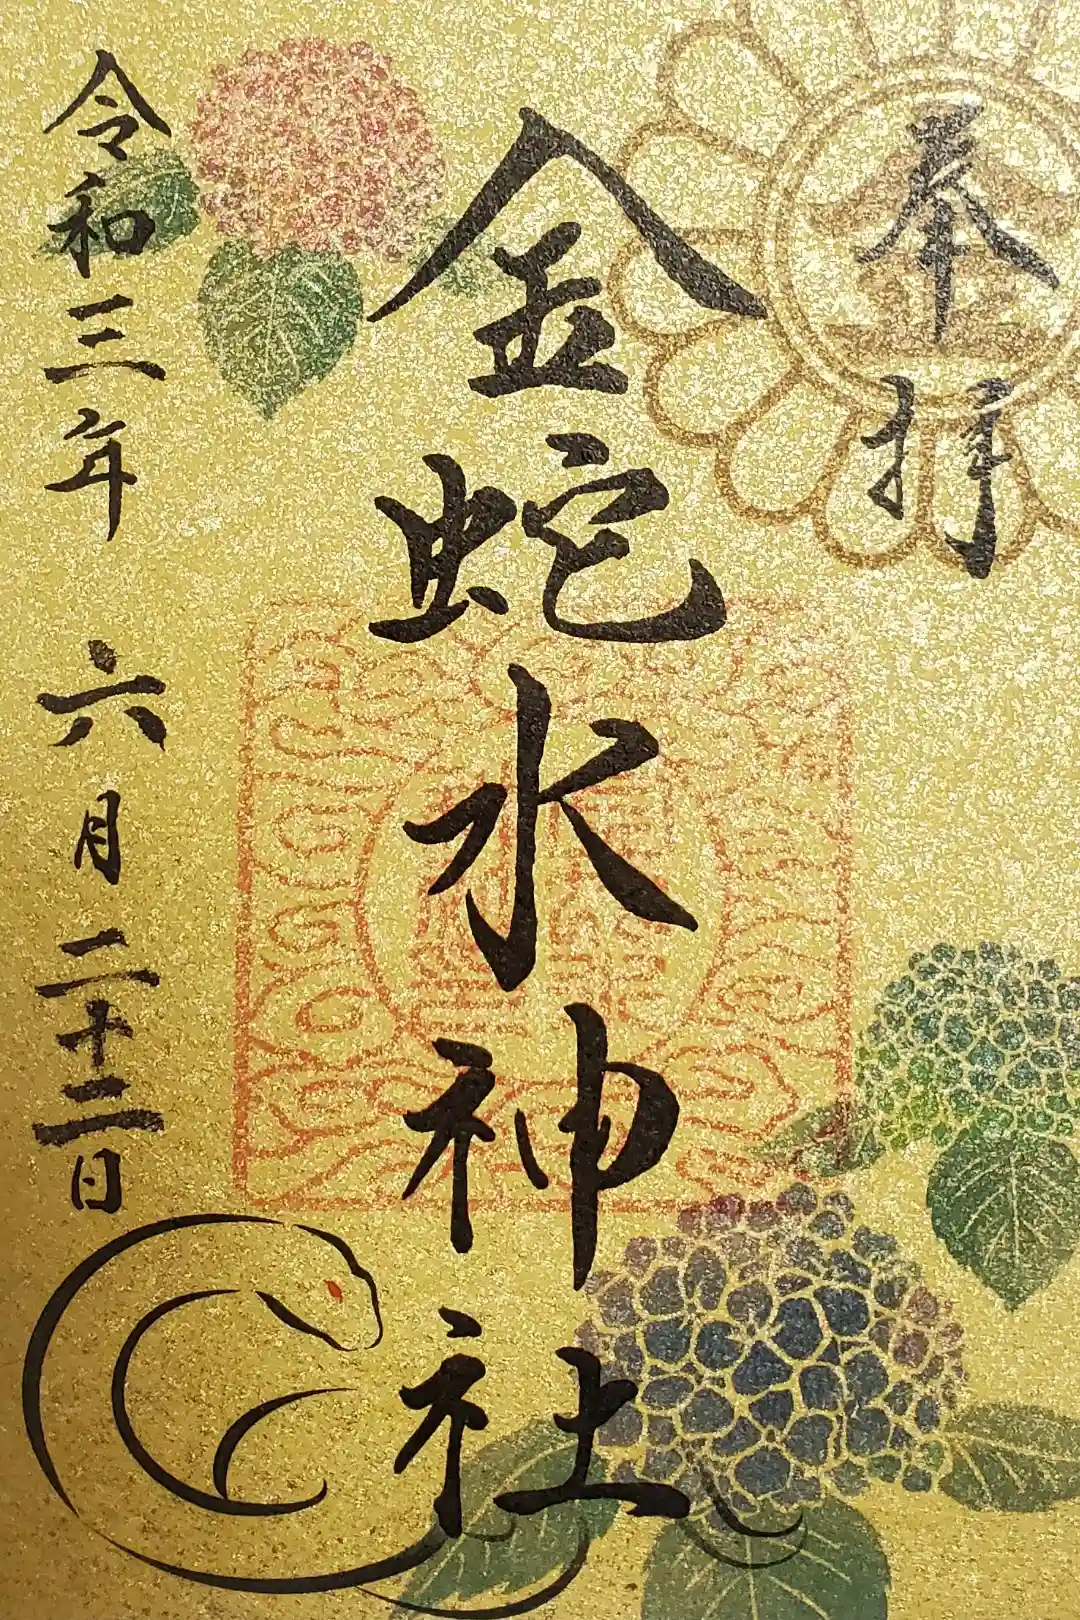 奉拝
金蛇水神社
令和三年 六月二十二日